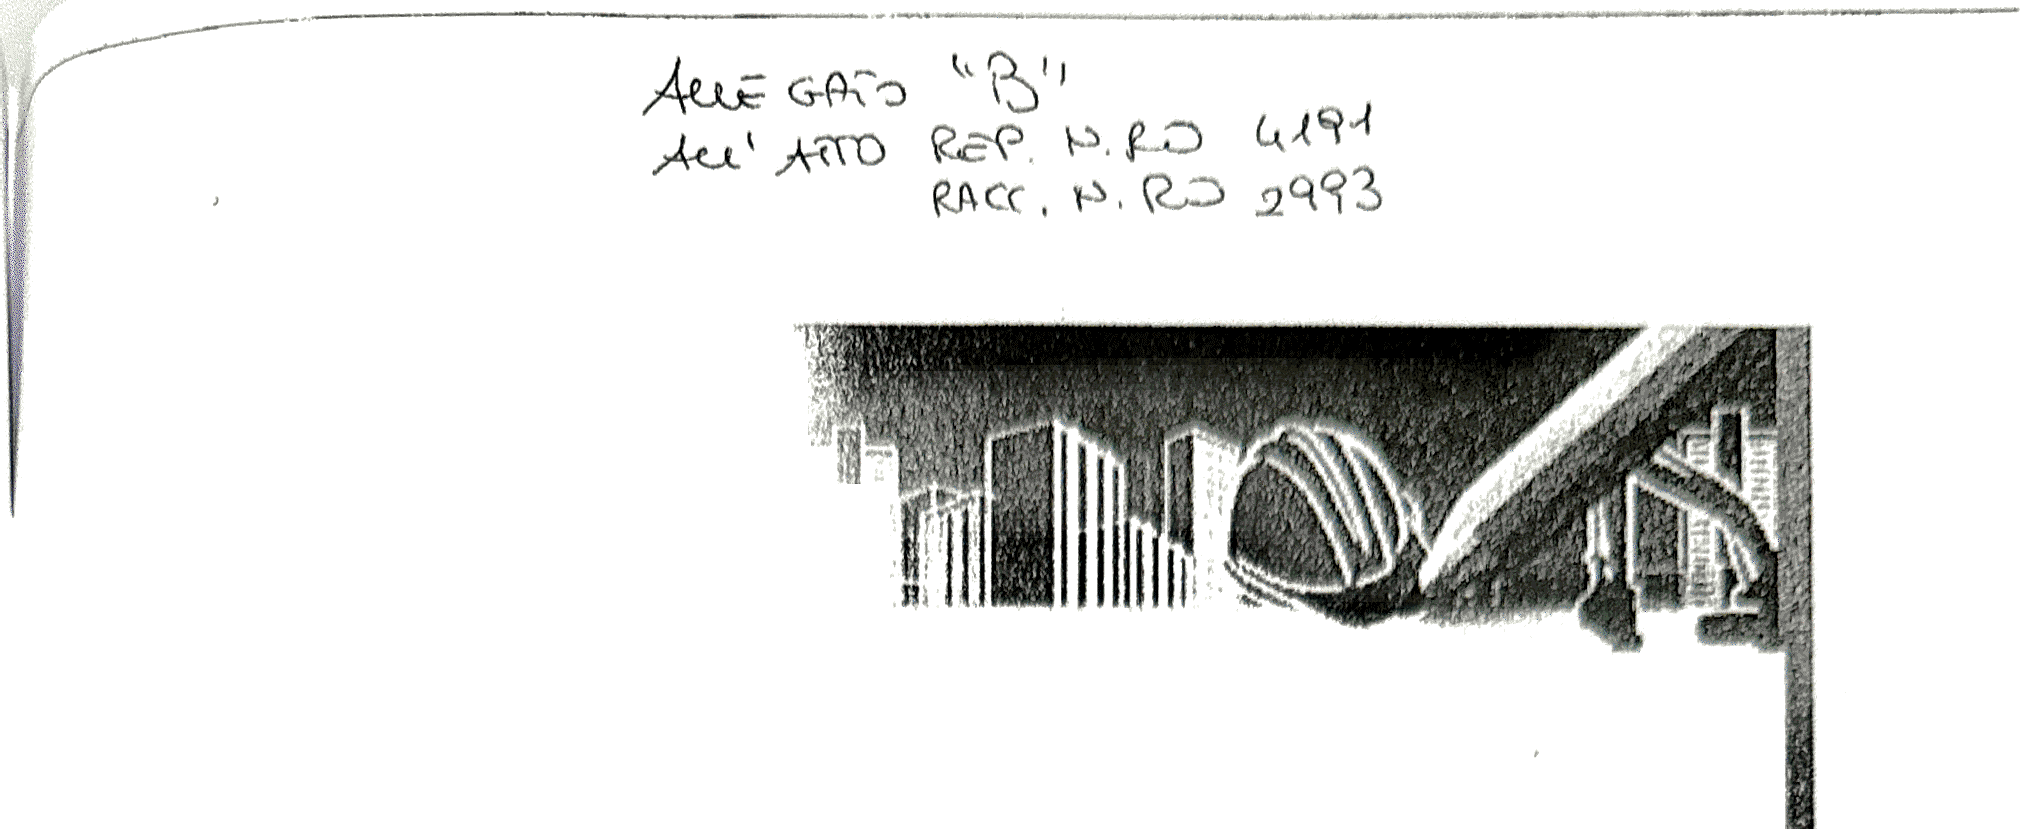 ALLEGATO "B"
ALL'ATTO REP. N.RO 4191
RACC. N.RO 2993